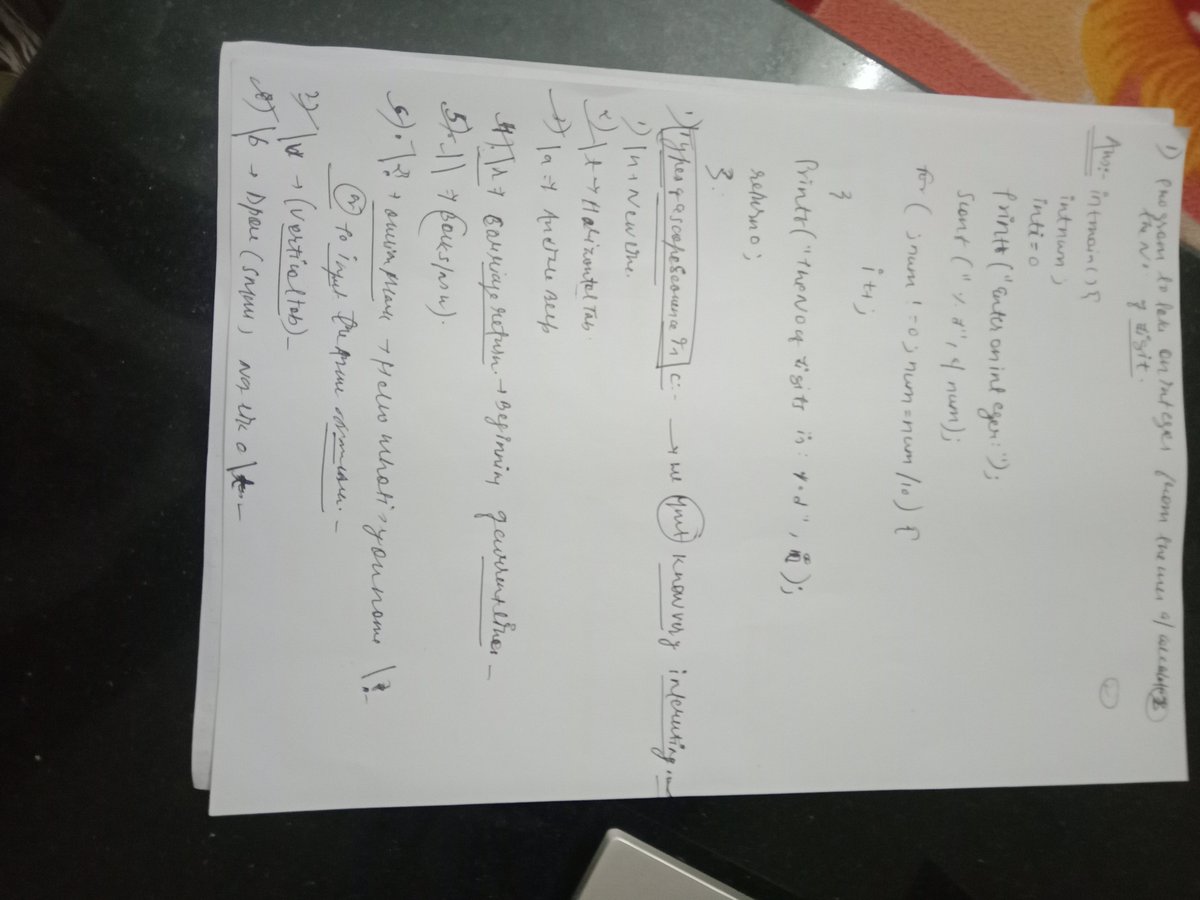 1) program to take an integer from the user & calculate
the No of digit.
Ans:- int main() {
int num;
int i = 0
printf ("enter an integer:");
scanf ("%d", & num);
for ( ; num != 0; num = num /10) {
i++;
}
printf ("the No of digits is: %d", i);
return 0;
}.
1) Types of escape sequence in c:- → we must know very interesting
1) \n → New line.
2) \t → Horizontal Tab.
3) \a →
4) \r → carriage return. → Beginning of current line -
5) - \\ → (Backslash).
6) \? → → Hello what is your name \?.-
(or) to input the
7) \v → (vertical tab) -
8) \b →